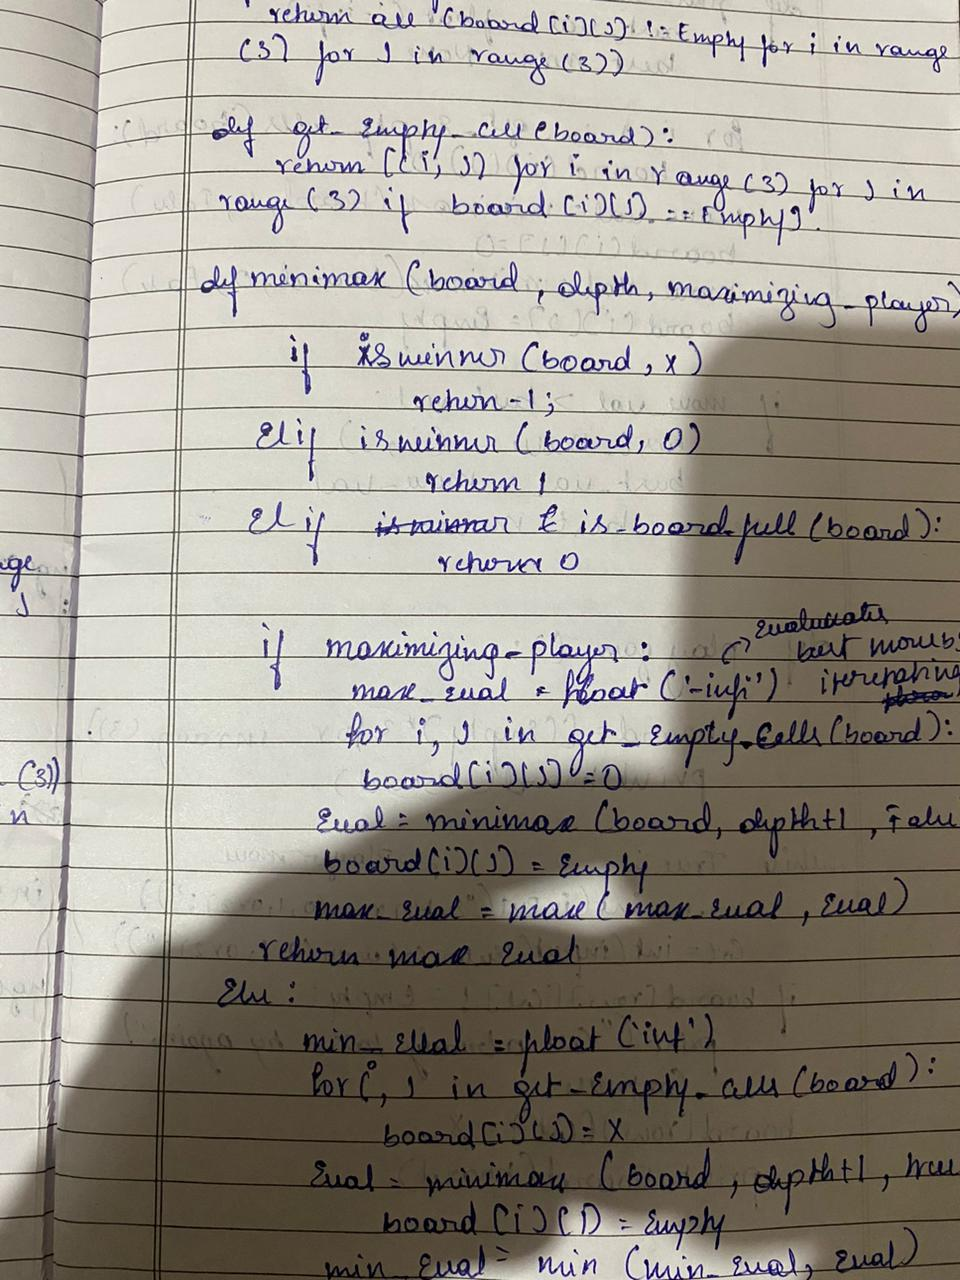 return all (board[i][j] != Empty for i in range
(3) for j in range(3))
def get_Empty_cell(board):
return [(i, j) for i in range(3) for j in
range(3) if board[i][j] == Empty].
def minimax (board, depth, maximizing_player)
if is winner (board, x)
return -1;
Elif is winner (board, 0)
return 1
Elif is-board-full (board):
return 0
ge
j :
if maximizing_player : → Evaluates
best moves
max_eval = float ('-infi') itterating
for i, j in get_Empty_Cells(board):
board[i][j] = 0
(3))
n
Eval = minimax (board, depth+1, False
board[i][j] = Empty
max_eval = max( max_eval, Eval)
return max Eval
Else :
min_Eval = float ('inf')
for i, j in get_Empty_cells (board):
board[i][j] = X
Eval = minimax (board, depth+1, true
board [i][j] = Empty
min_Eval = min (min_Eval, Eval)